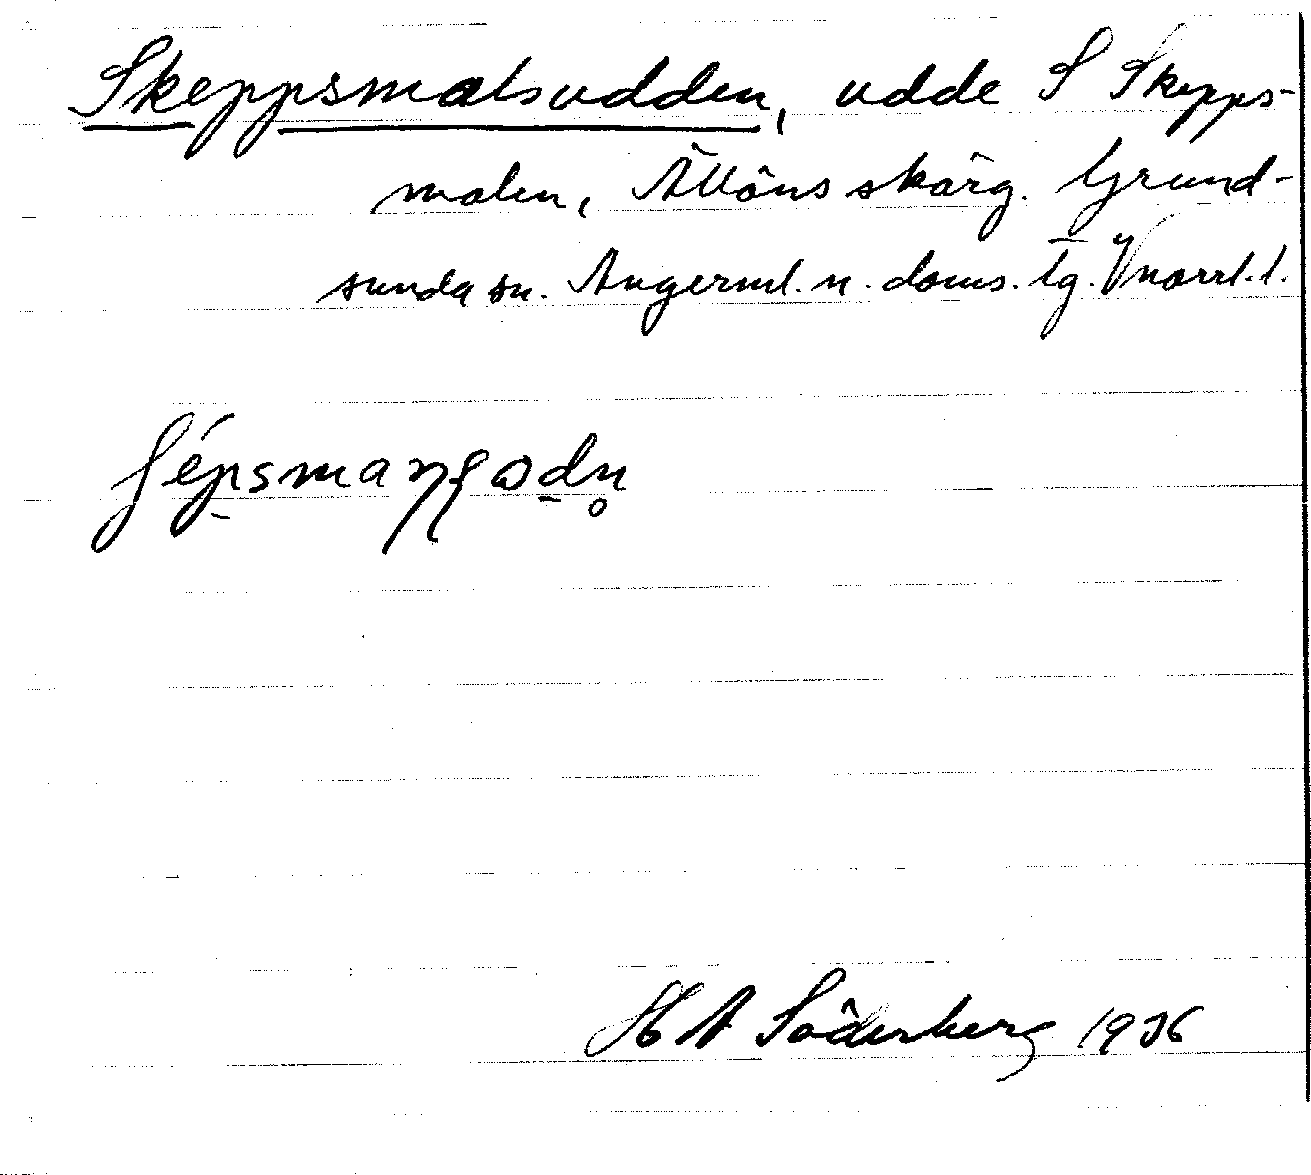 Skeppsmalsudden, udde S Skepps-
malen, Ällöns skärg. Grund-
sunda sn. Ångerml. n. doms. tg. Vnorrl. l.
H A Söderberg 1936